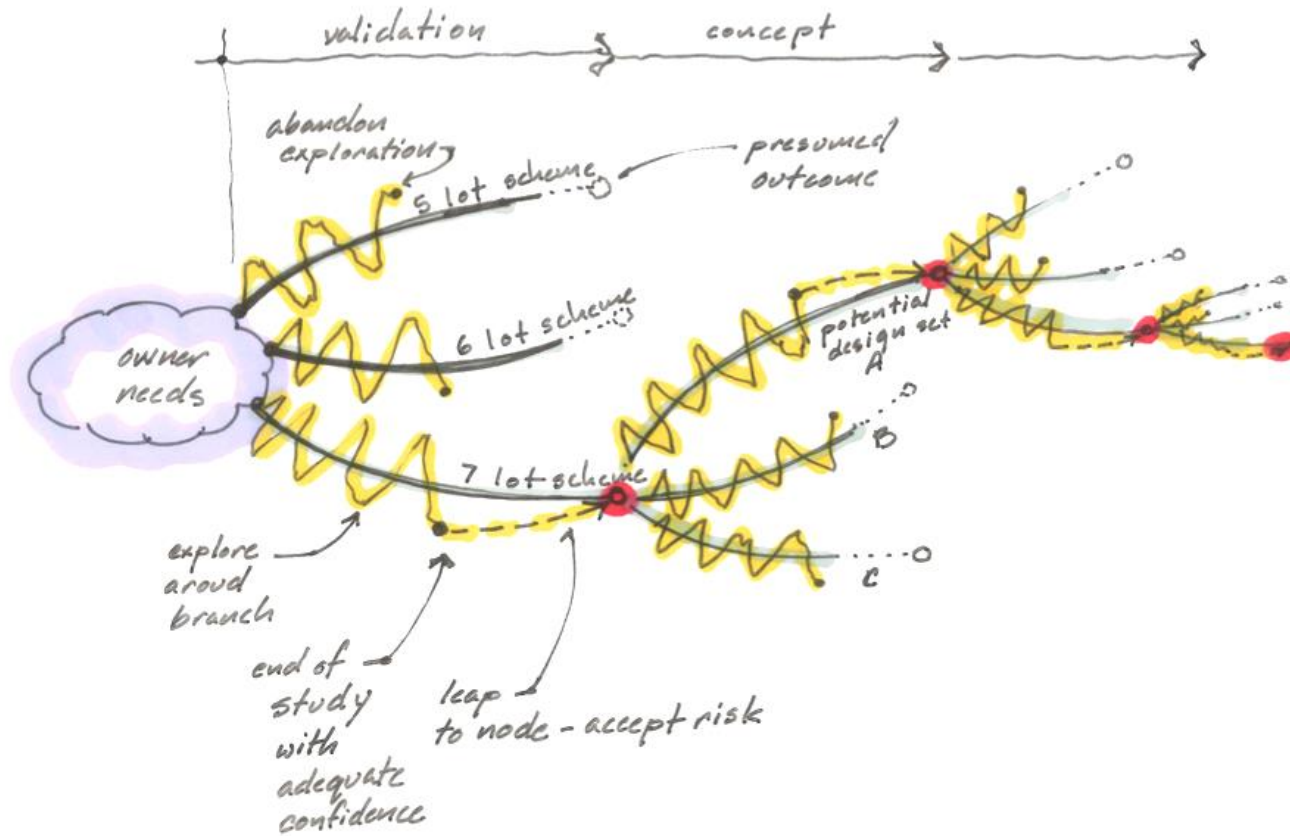 validation
concept
abandon
exploration
5 lot scheme
presumed
outcome
6 lot scheme
owner
needs
potential
design set
A
B
7 lot scheme
C
explore
aroud
branch
end of
study
with
adequate
confidence
leap
to node - accept risk